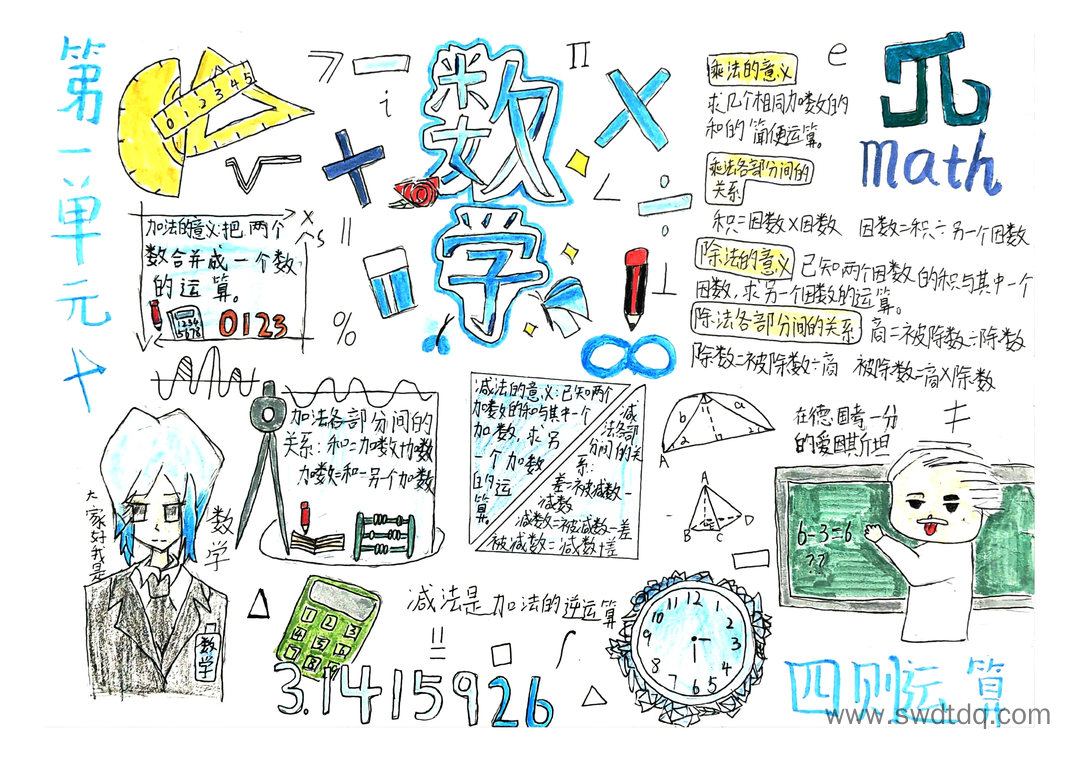 第一单元
数学
0 1 2 3 4 5
i
π
e
π
math
乘法的意义
求几个相同加数的
和的简便运算。
乘法各部分间的
关系
积=因数×因数 因数=积÷另一个因数
除法的意义 已知两个因数的积与其中一个
因数,求另一个因数的运算。
除法各部分间的关系 商=被除数÷除数
除数=被除数÷商 被除数=商×除数
x
s
加法的意义:把两个
数合并成一个数
的运算。
0123
%
加法各部分间的
关系:和=加数+加数
加数=和-另一个加数
减法的意义:已知两个
加数的和与其中一个
加数,求另
一个加数
的运
算。
减
法各部
分间的关
系:
差=被减数-
减数
减数=被减数-差
被减数=减数+差
b
a
A
A
B
C
D
在德国考一分
的爱因斯坦
6-3=6
??
大家好我是
数学
数学
减法是加法的逆运算
1 2 3
4 5 6
7 8 9
3.1415926
12 1 2 3 4 5 6 7 8 9 10 11
四则运算
www.swdtdq.com